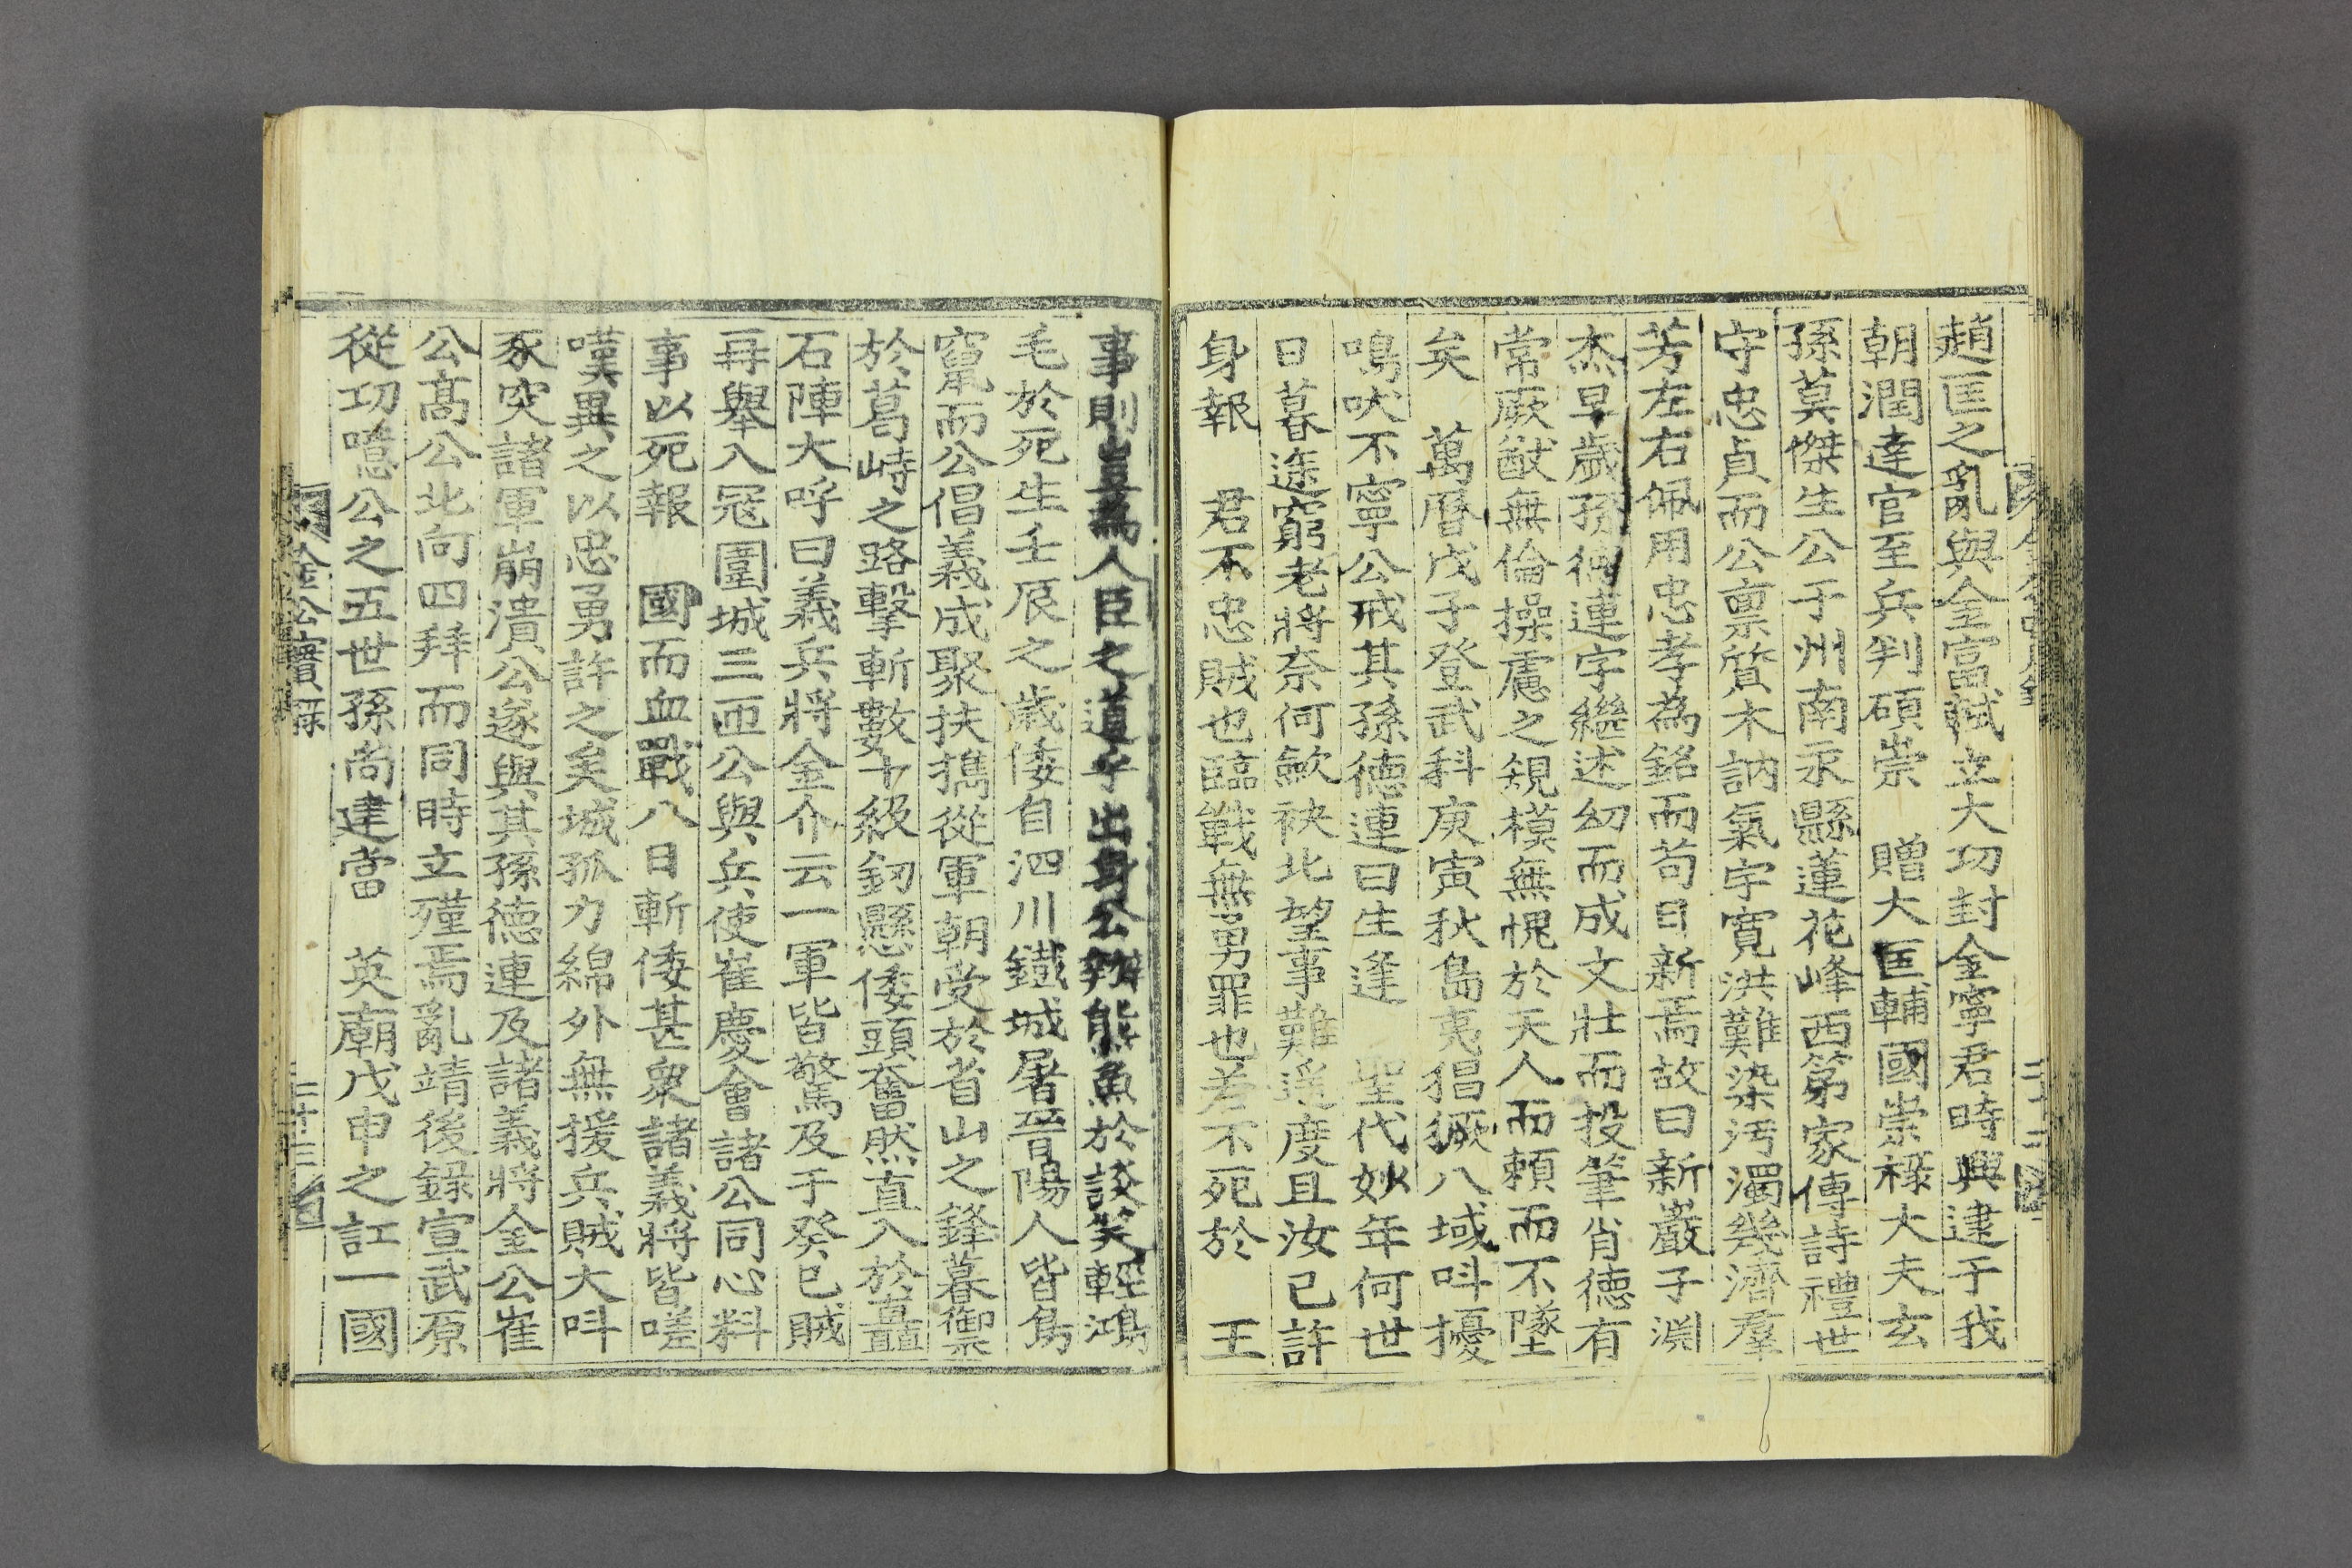 趙匡之亂與金富軾立大功封金寧君時興逮于我
朝潤達官至兵判碩崇　贈大匡輔國崇祿大夫玄
孫莫傑生公于州南永縣蓮花峰西第家傳詩禮世
守忠貞而公禀質木訥氣宇寬洪難染汚濁幾濟羣
芳左右佩用忠孝為銘而苟日新焉故曰新巖子淵
杰早歲孫德連字繼述幼而成文壯而投筆肖德有
常厥猷無倫操慮之規模無愧於天人而賴而不墜
矣　萬曆戊子登武科庚寅秋島夷猖獗八域呌擾
鳴吠不寧公戒其孫德連曰生逢　聖代妙年何世
日暮途窮老將奈何歛袂北望事難遙度且汝已許
身報　君不忠賊也臨戰無勇罪也若不死於　王
事則豈為人臣之道乎出身公辦熊魚於談笑輕鴻
毛於死生壬辰之歲倭自泗川鐵城屠晉陽人皆鳥
竄而公倡義成聚扶携從軍朝受於省山之鋒暮禦
於葛峙之路擊斬數十級釰懸倭頭奮然直入於矗
石陣大呼曰義兵將金介云一軍皆驚及于癸巳賊
再擧入冦圍城三匝公與兵使崔慶會諸公同心料
事以死報　國而血戰八日斬倭甚衆諸義將皆嗟
嘆異之以忠勇許之矣城孤力綿外無援兵賊大呌
豕突諸軍崩潰公遂與其孫德連及諸義將金公崔
公高公北向四拜而同時立殣焉亂靖後錄宣武原
從功噫公之五世孫尚建當　英廟戊申之訌一國
金公實録
二十三